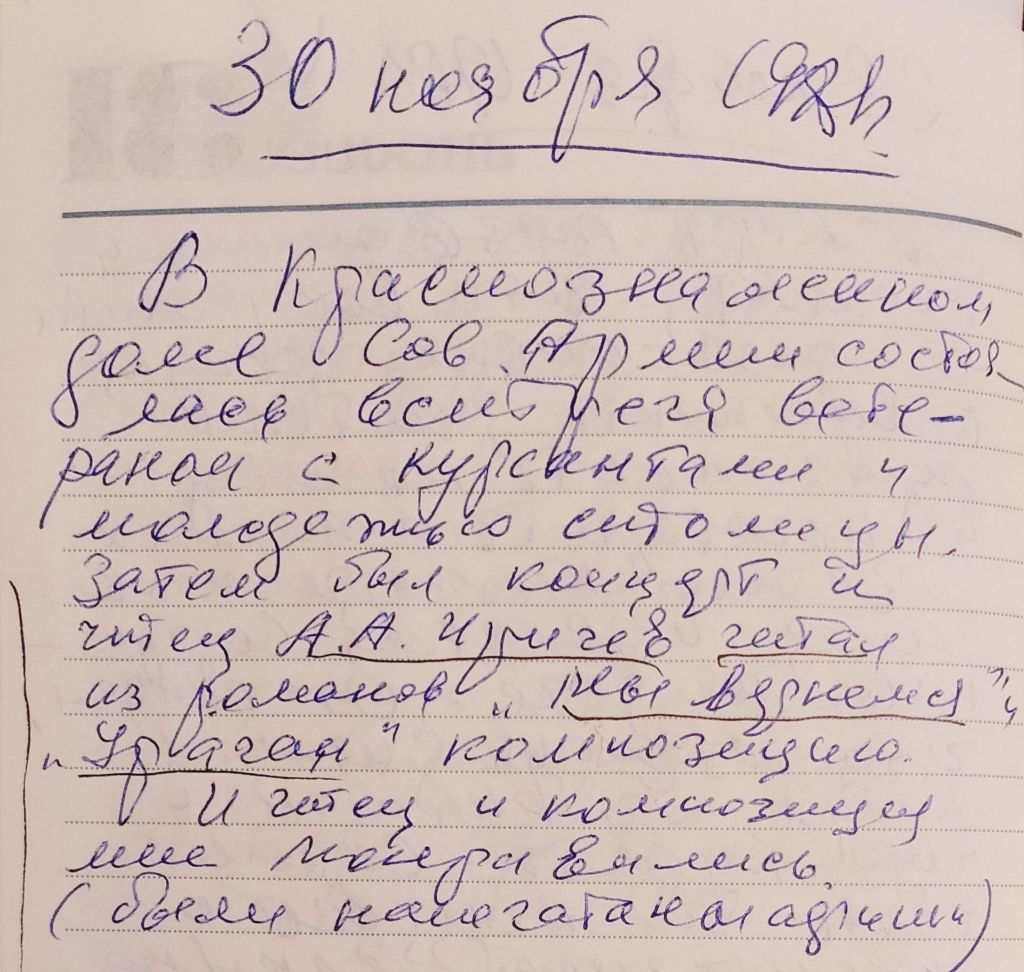 30 ноября
В Краснознаменном
доме Сов. Армии состоя
лась встреча вете-
ранов с курсантами и
молодежью столицы.
Затем был концерт и
чтец А.А. читал
из романов „Мы вернемся" и
„Ураган" композицию.
И чтец и композиция
мне понравились.
(были напечатаны афиши)